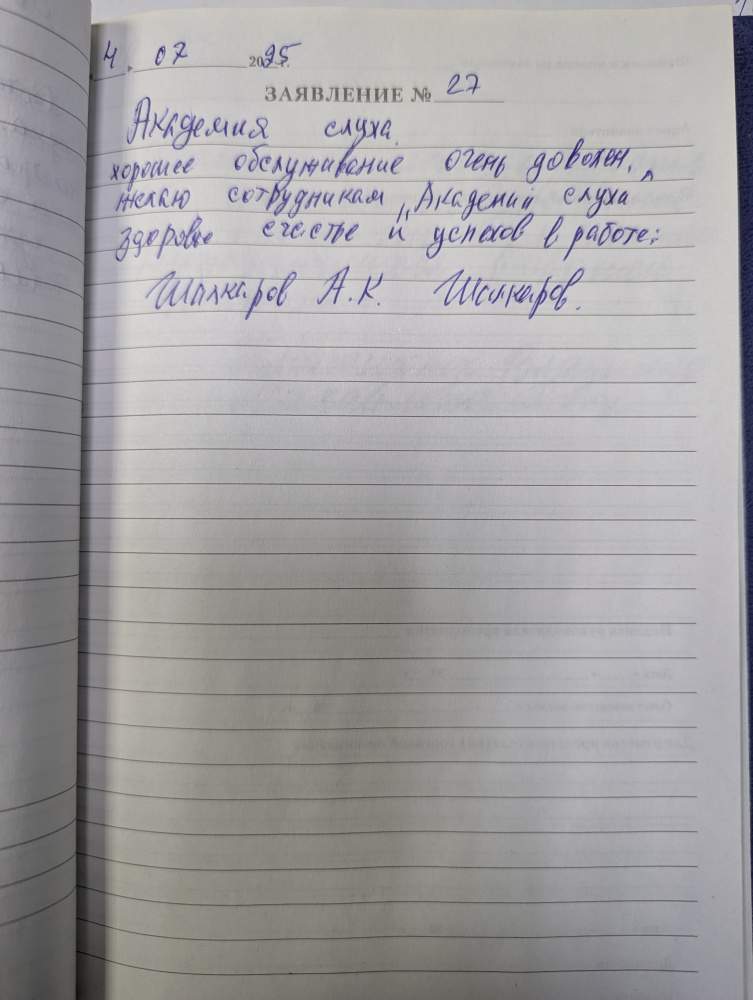 4. 07 2025 г.
ЗАЯВЛЕНИЕ № 27
Академия слуха.
хорошее обслуживание очень доволен,
желаю сотрудникам „Академий слуха"
здоровье счастье и успехов в работе;
Шалкаров А.К. Шалкаров.